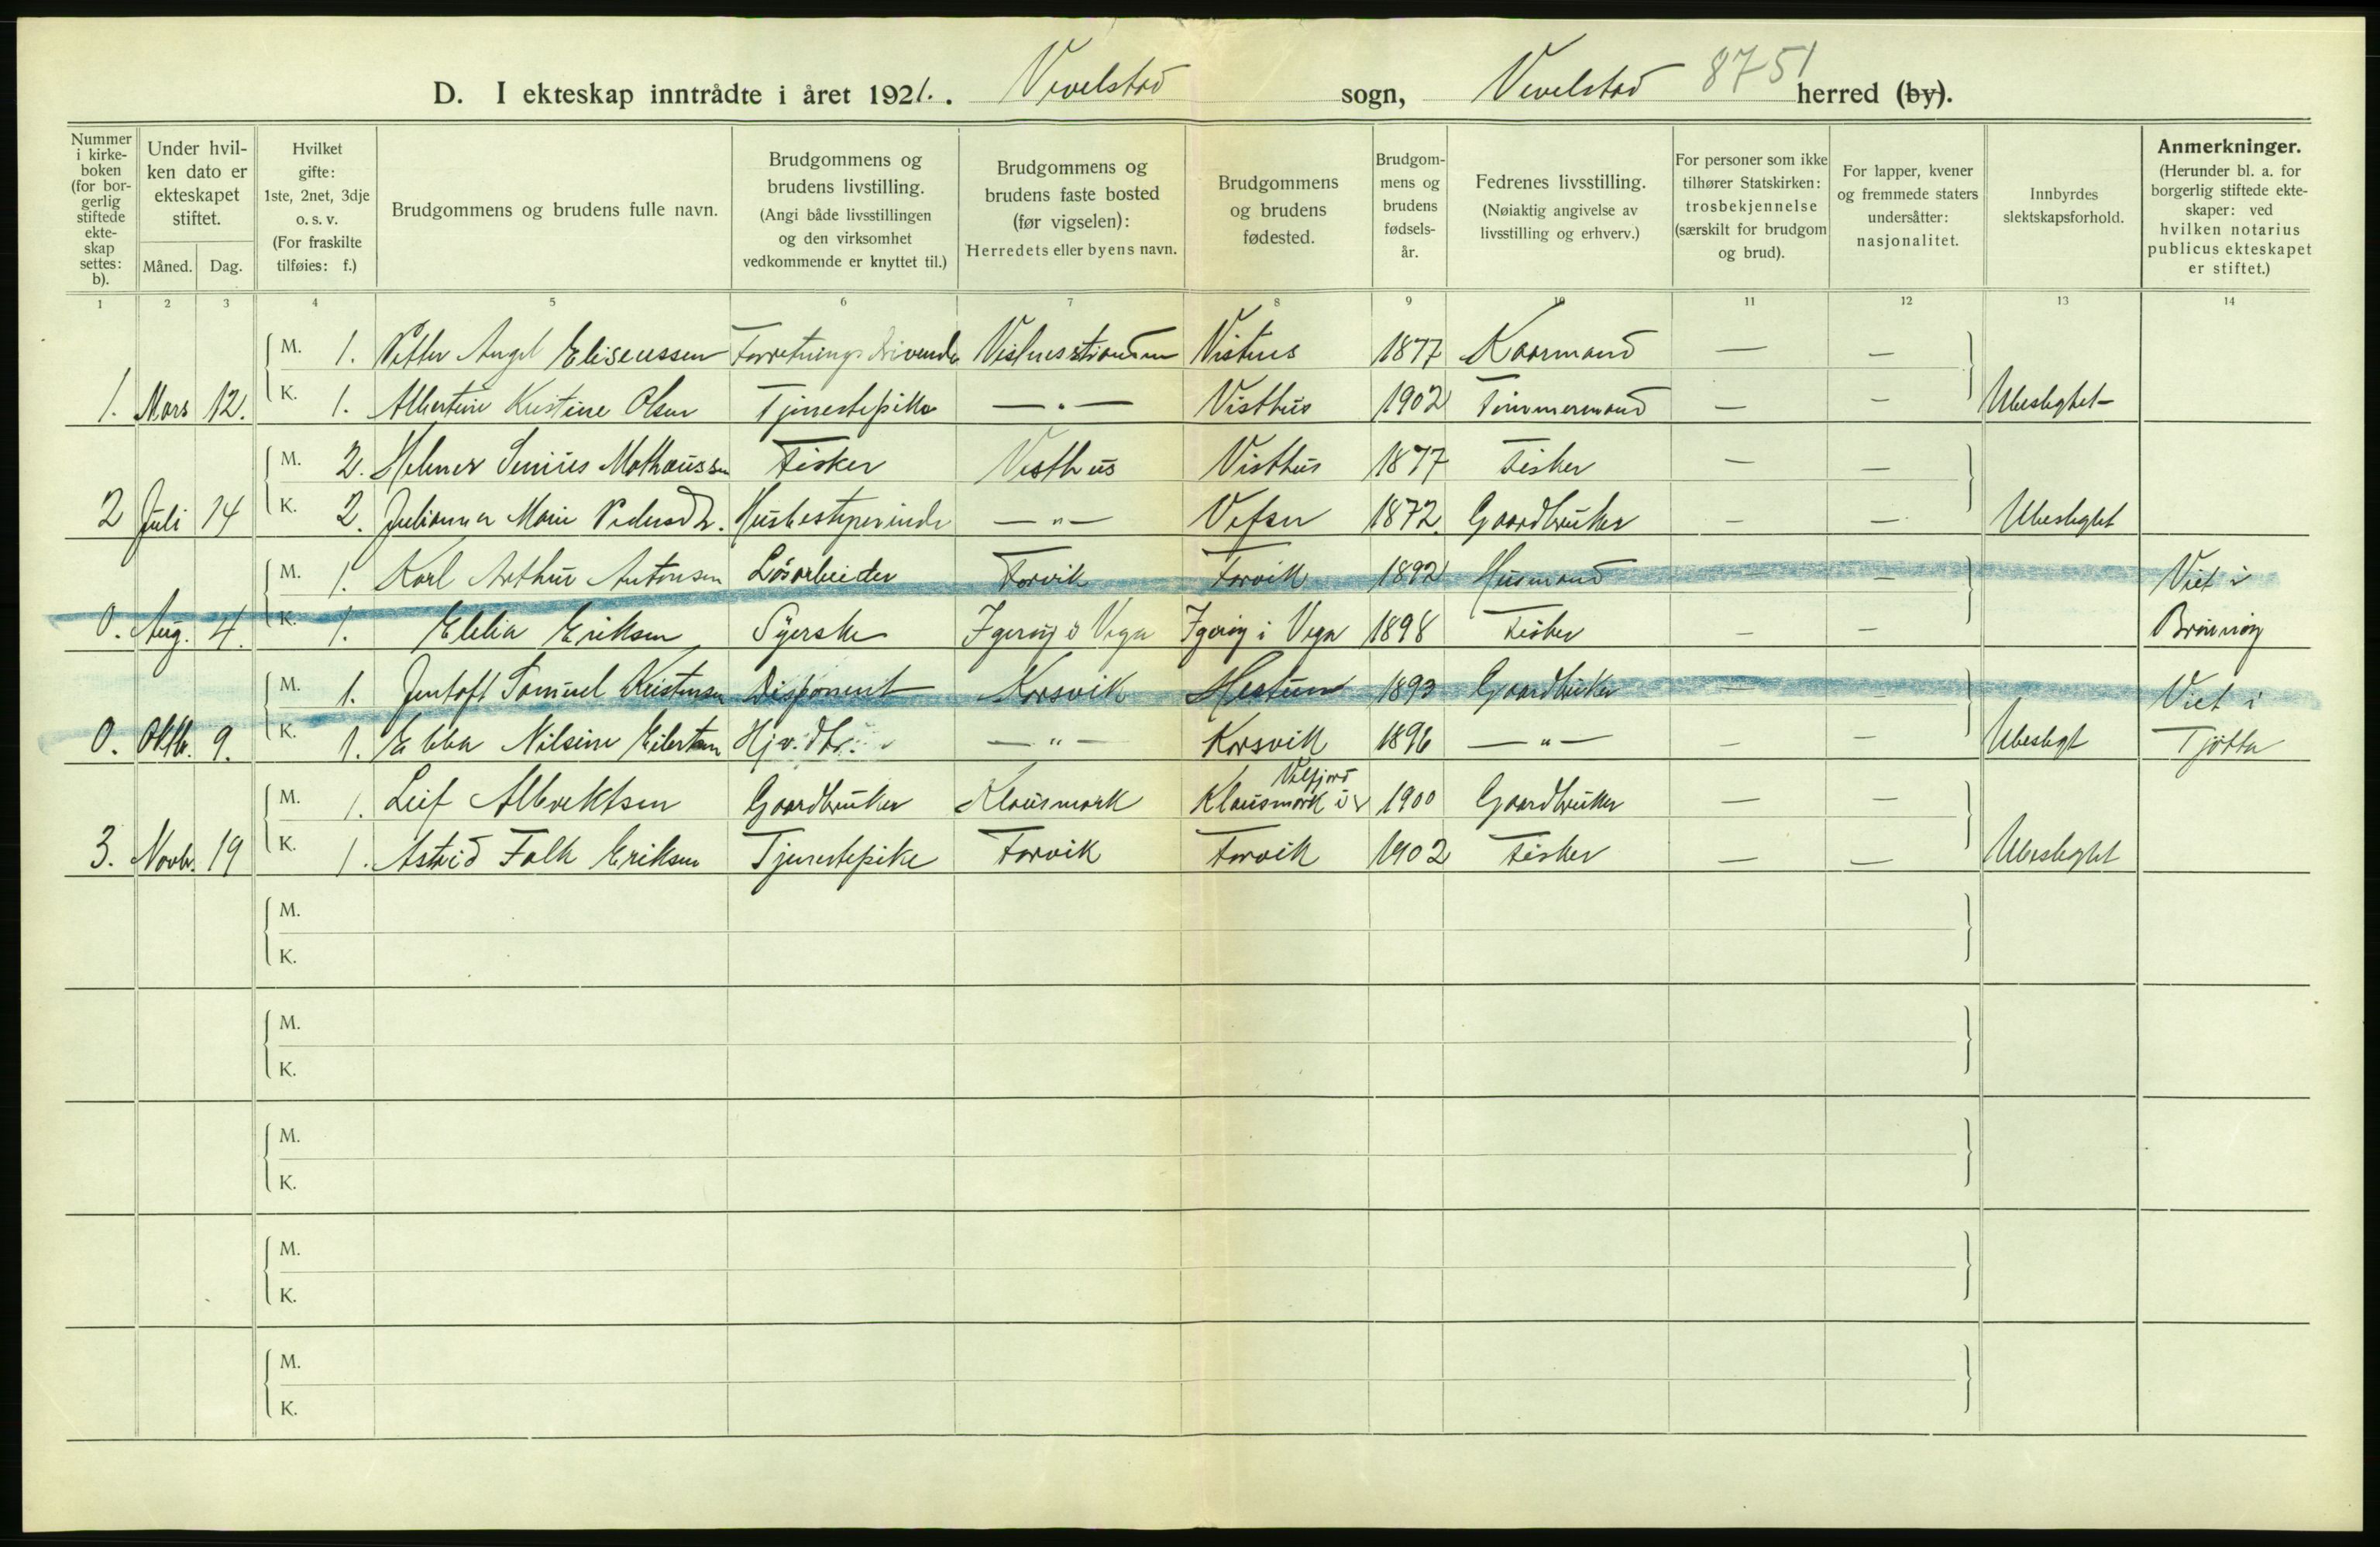 D. I ekteskap inntrådte i året 1921. Vevelstad sogn, Vevelstad herred (by). 8751
Nummer i kirkeboken (for borgerlig stiftede ekteskap settes: b).
Under hvilken dato er ekteskapet stiftet.
Måned. Dag.
Hvilket gifte: 1ste, 2net, 3dje o. s. v. (For fraskilte tilføies: f.)
Brudgommens og brudens fulle navn.
Brudgommens og brudens livstilling. (Angi både livsstillingen og den virksomhet vedkommende er knyttet til.)
Brudgommens og brudens faste bosted (før vigselen): Herredets eller byens navn.
Brudgommens og brudens fødested.
Brudgommens og brudens fødselsår.
Fedrenes livsstilling. (Nøiaktig angivelse av livsstilling og erhverv.)
For personer som ikke tilhører Statskirken: trosbekjennelse (særskilt for brudgom og brud).
For lapper, kvener og fremmede staters undersåtter: nasjonalitet.
Innbyrdes slektskapsforhold.
Anmerkninger. (Herunder bl. a. for borgerlig stiftede ekteskaper: ved hvilken notarius publicus ekteskapet er stiftet.)
1 2 3 4 5 6 7 8 9 10 11 12 13 14
M. 1. Petter Angel Eliseussen Forretningsdrivende Visthus Visthus 1877 — —
1. Mars 12. K. 1. Albertine Kristine Olsen Tjenestepike — " — Visthus 1902 Tømmermand — — Ubeslegtet
M. 2. Helmer Senius Mathaussen Fisker Visthus Visthus 1877 Fisker — —
2 Juli 14 K. 2. Julianna Marie Pedersdtr. Husbestyrerinde — " — Vefsn 1872. Gaardbruker — — Ubeslegtet
M. 1. Karl Arthur Antonsen Løsarbeider Forvik Forvik 1892 Husmand — — Viet i
0. Aug. 4. K. 1. Ellia Eriksen Syerske Igerøy i Vega Igerøy i Vega 1898 Fisker — — Brønnøy
M. 1. Jentoft Samuel Kristensen Disponent Korsvik Hestun 1893 Gaardbruker — — Viet i
0. Oktbr. 9. K. 1. Ebba Nilsine Eilertsen Hjv. dtr. — " — Korsvik 1896 — " — — — Ubeslegt Tjøtta
M. 1. Leif Albrektsen Gaardbruker Klausmark Klausmark i Velfjord 1900 Gaardbruker — —
3. Novbr. 19 K. 1. Astrid Falk Eriksen Tjenestepike Forvik Forvik 1902 Fisker — — Ubeslegtet
M.
K.
M.
K.
M.
K.
M.
K.
M.
K.